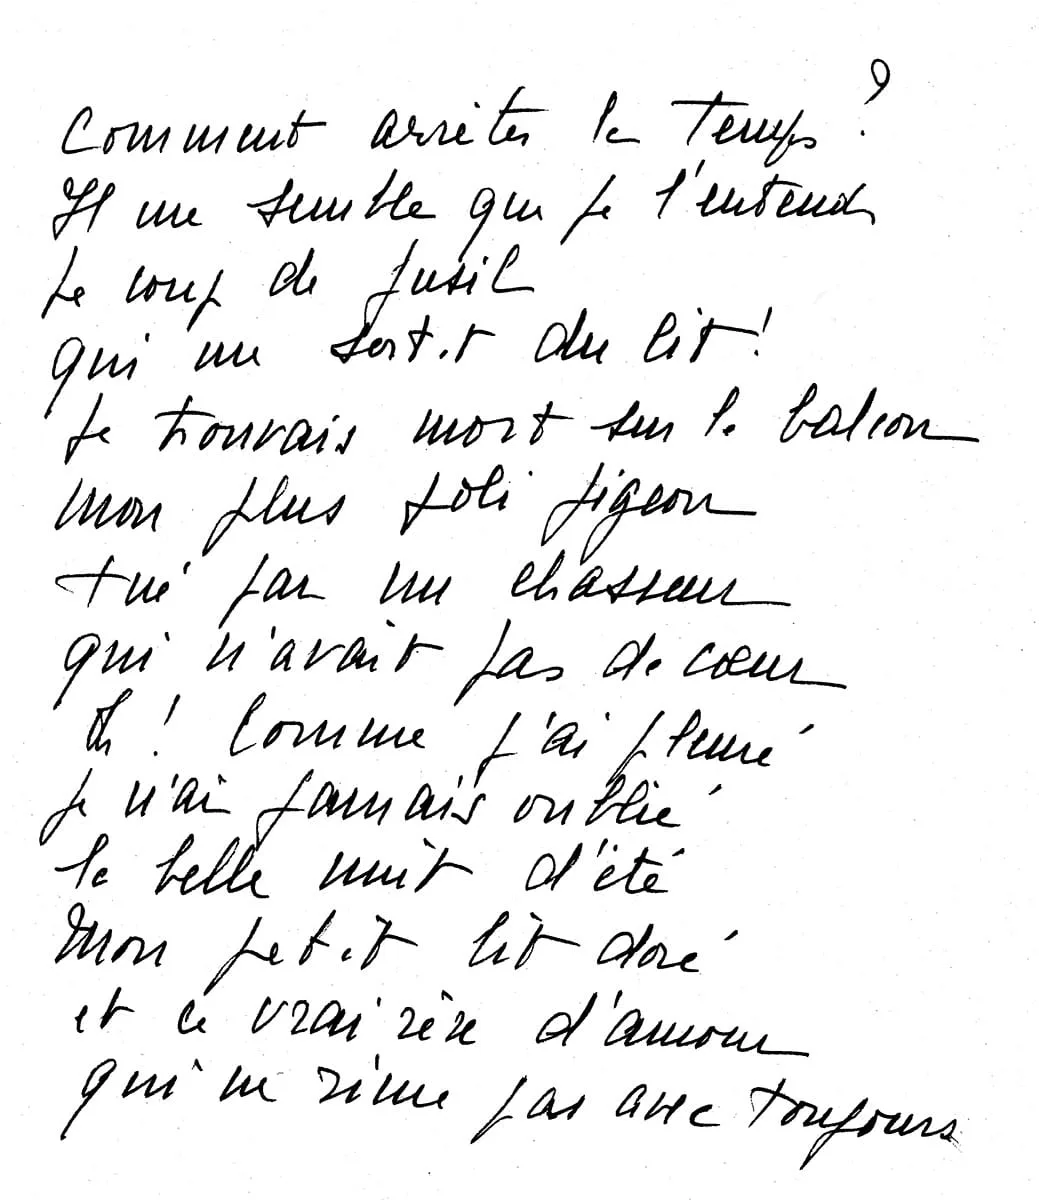 Comment arrêter le Temps ?
Il me semble que je l'entends
Le coup de fusil
qui me sortit du lit !
Je trouvais mort sur le balcon
mon plus joli pigeon
tué par un chasseur
qui n'avait pas de cœur
Oh ! Comme j'ai pleuré
je n'ai jamais oublié
la belle nuit d'été
Mon petit lit doré
et ce vrai rêve d'amour
qui ne rime pas avec toujours